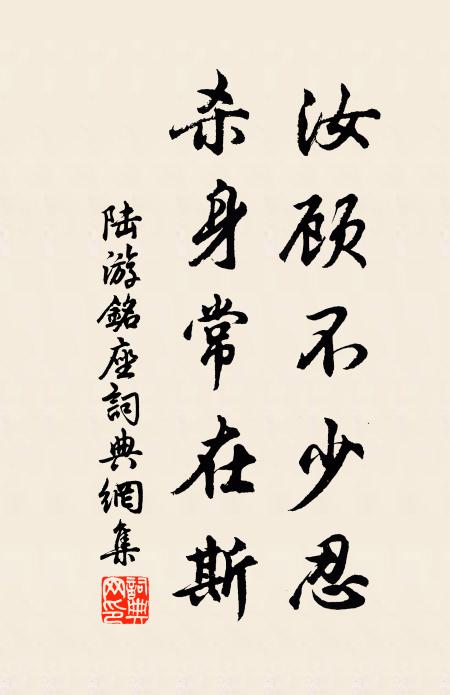 汝顾不少忍
杀身常在斯
陆游銘座詞典網集
詞典网印